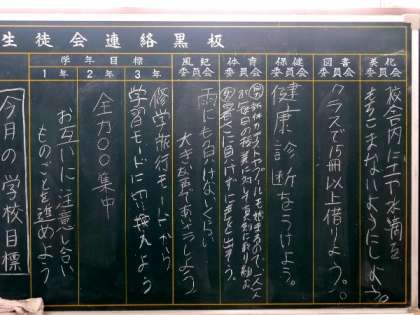 生徒会連絡黒板
学年目標
1年
2年
3年
風紀委員会
体育委員会
保健委員会
図書委員会
美化委員会
校舎内に土や水滴を
もちこまないようにしよう。
クラスで15冊以上借りよう。
健康診断をうけよう。
テストやプールも始まるので、一人一人
が毎日の授業に対
暑さに負けずに声を出そう。
雨にも負けないくらい
大きな声であいさつしよう
修学旅行モードから
学習モードに切り換えよう
全力○○集中
お互いに注意し合い
ものごとを進めよう
今月の学校目標